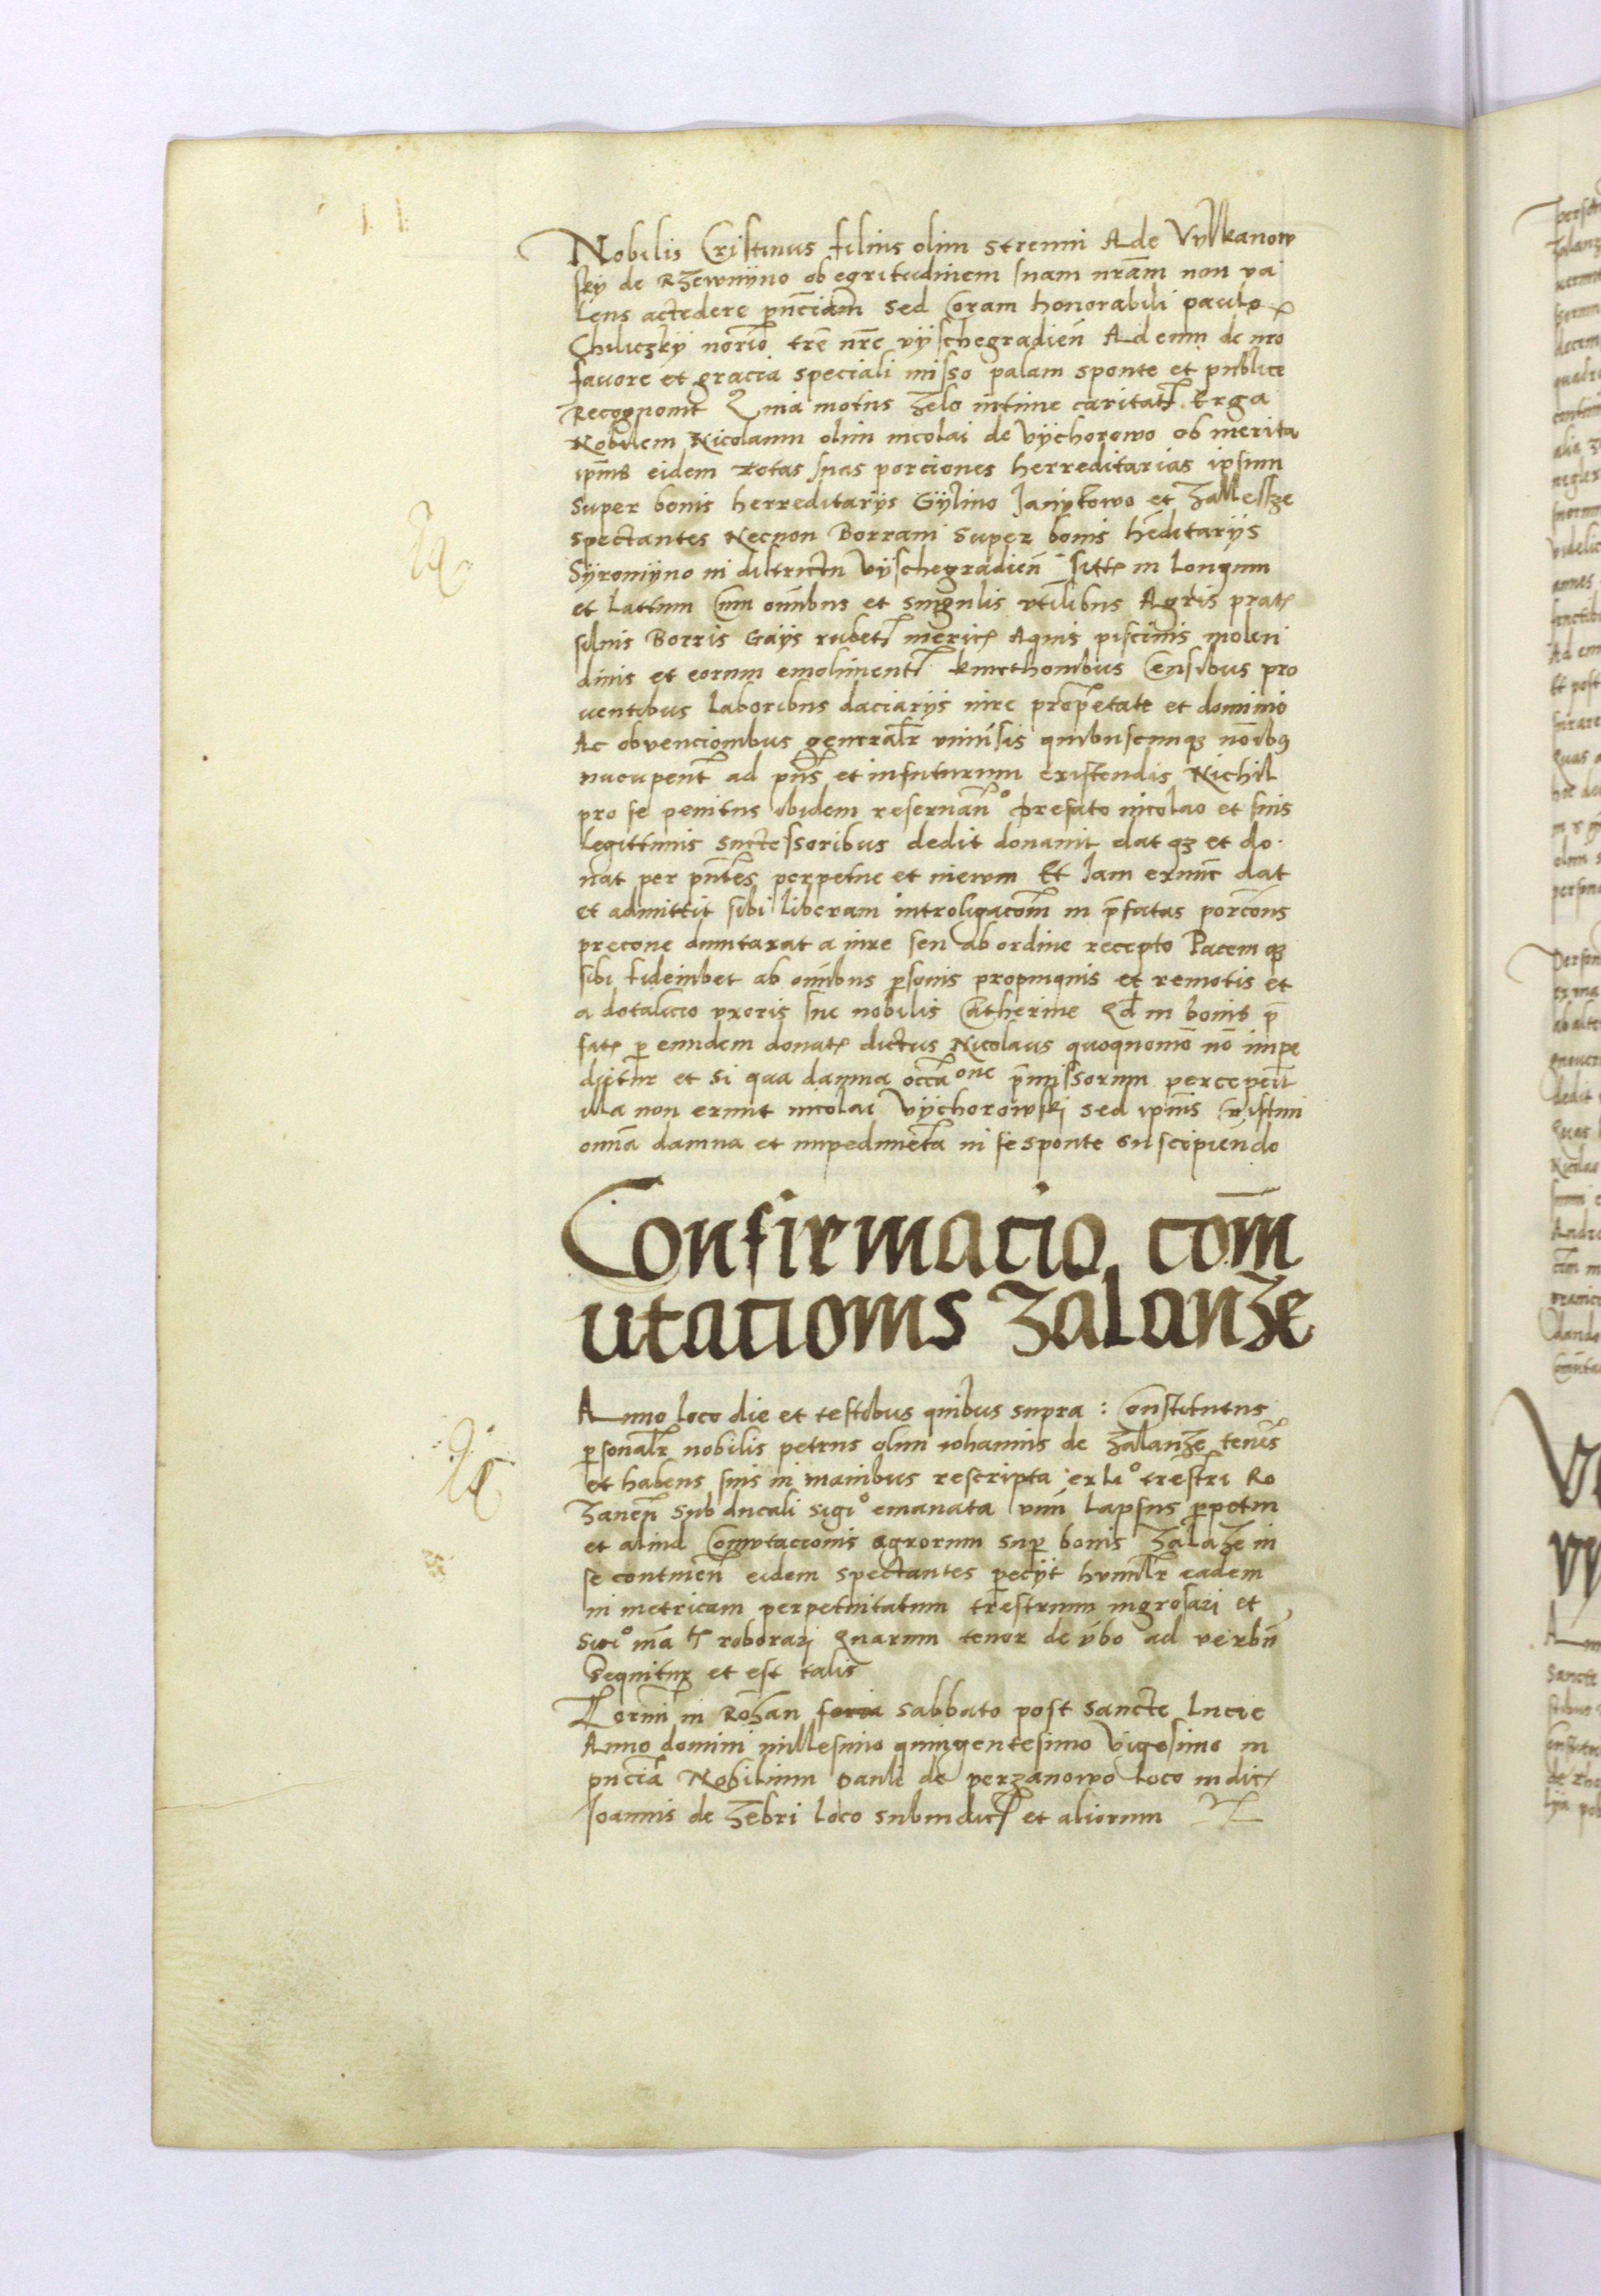 Nobilis Cristinus filius olim strenui Ade Vylkanow
sky de Rzewnyno ob egritudinem suam nram non va
lens accedere pnciam sed Coram honorabili paulo
Chiliczky norio tre nre vyschegradien Ad eum de nro
favore et gracia speciali misso palam sponte et publice
Recognovit Quia motus zelo intime caritatis Erga
Nobilem Nicolaum olim nicolai de Vychorowo ob merita
ipius eidem totas suas porciones herreditarias ipsum
super bonis herreditarys Gylino Janykowo et Zallesze
spectantes Necnon Borrani super bonis heditarys
Syromyno in districtu Vyschegradien sitis in Longum
et Latum Cum omibus et singulis vtilibus Agris pratis
siluis Borris Gays rubetis mericis Aquis piscinis molen
dinis et eorum emolimentis kmethonibus Censibus pro
uentibus Laboribus daciarys iure proprietate et dominio
Ac obvencionibus generalr vniusis quibuscumque noibus
nucupent ad pns et in futurum existendis Nichil
pro se penitus ibidem reseruan° prefato nicolao et suis
Legittimis successoribus dedit donauit dat que et do
nat per pntes perpetue et in ewm Et Jam exnunc dat
et admittit sibi liberam introligacom in prefatas porcons
precone dumtaxat a iure seu ab ordine recepto Pacem que
sibi fideiubet ab omibus psonis propinquis et remotis et
a dotalicio vxoris sue nobilis Catherine Qd in bonis pre
fatis p eundem donatis dictus Nicolaus quoquomo no impe
dietur et si qua damna occaone pmissorum perceperit
illa non erunt nicolai Vychorowski sed ipius Cristini
omia damna et impedimeta in se sponte suscipiendo
Confirmacio com
utacionis Zalanze
Anno loco die et testibus quibus supra : Constitutus
psonalr nobilis petrus olim iohannis de Zalanze tenes
et habens suis in manibus rescripta ex li° trestri Ro
zanen sub ducali sigi° emanata vnu Lapsus ppetui
et aliud Comutacionis agrorum sup bonis Zalaze in
se continen eidem spectantes peciit humilr eadem
in metricam perpetuitatum trestrium ingrosari et
sigi° roborari Quarum tenor de vbo ad verbu
sequitur et est talis
Termi in Rozan feria sabbato post sancte Lucie
Anno domini millesimo quingentesimo Vigesimo in
pncia Nobilium Pauli de perzanowo Loco iudicis
Joannis de Zebri loco subiudicis et aliorum